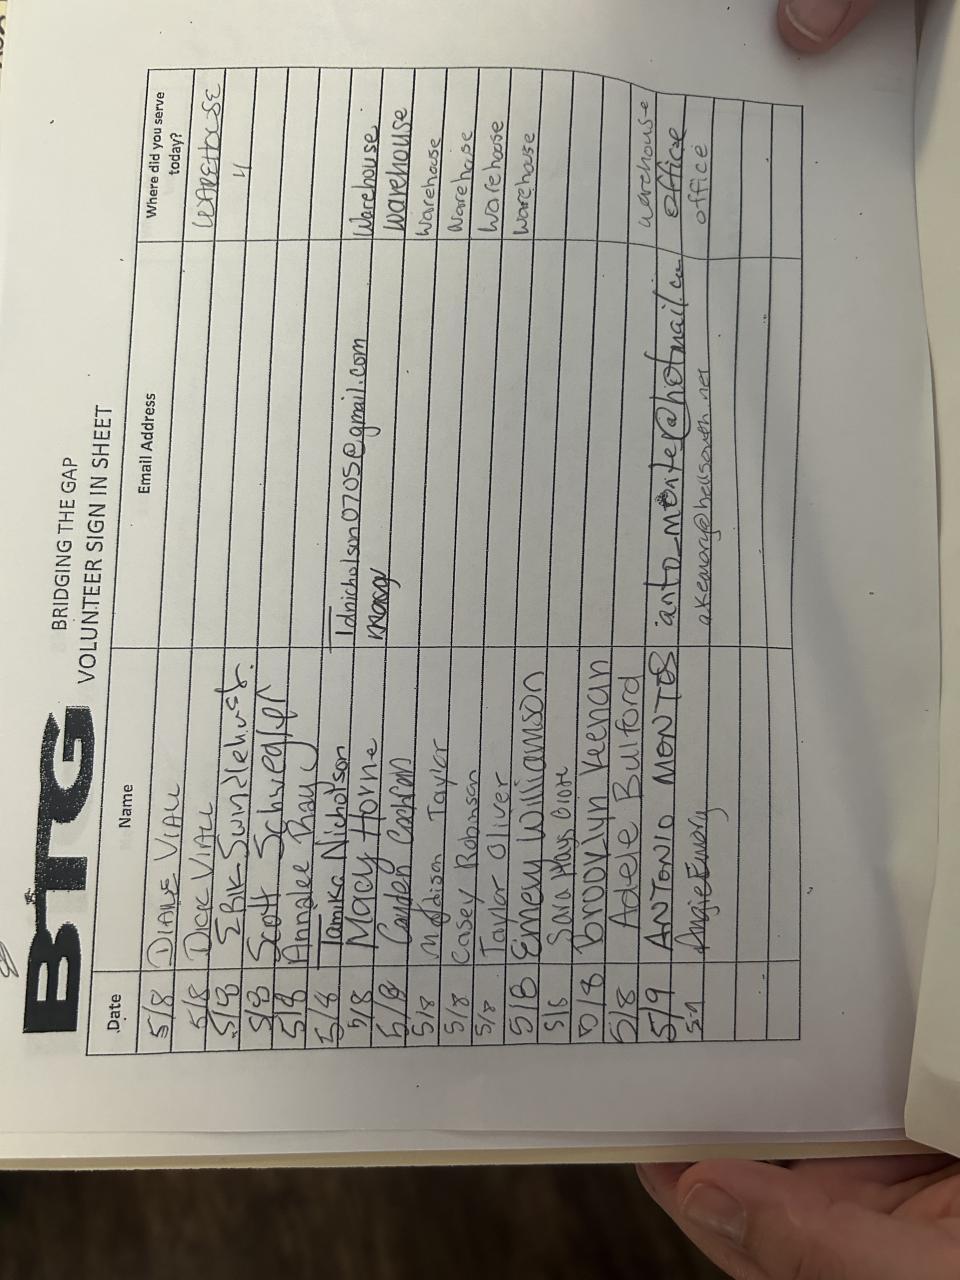 BTG
BRIDGING THE GAP
VOLUNTEER SIGN IN SHEET
Date Name Email Address Where did you serve today?
5/8 DIANE VIALL WAREHOUSE
5/8 DICK VIALL 4
5/8 ERIK Swindlehurst.
5/8 Scott Schwegler
5/8 Annalee Thay
5/8 Tamika Nicholson Tdnicholson0705@gmail.com
5/8 Macy Horne Warehouse
5/8 Cayden Cochran Warehouse
5/8 Madison Taylor Warehouse
5/8 Casey Robinson Warehouse
5/8 Taylor Oliver Warehouse
5/8 Emery Williamson Warehouse
5/8 Sara Hays
5/8 Brooklyn Keenan
5/8 Adele Bulford warehouse
5/9 ANTONIO MONTES anto_monte@hotmail.com office
5-9 Angie Emory akemory@bellsouth.net office